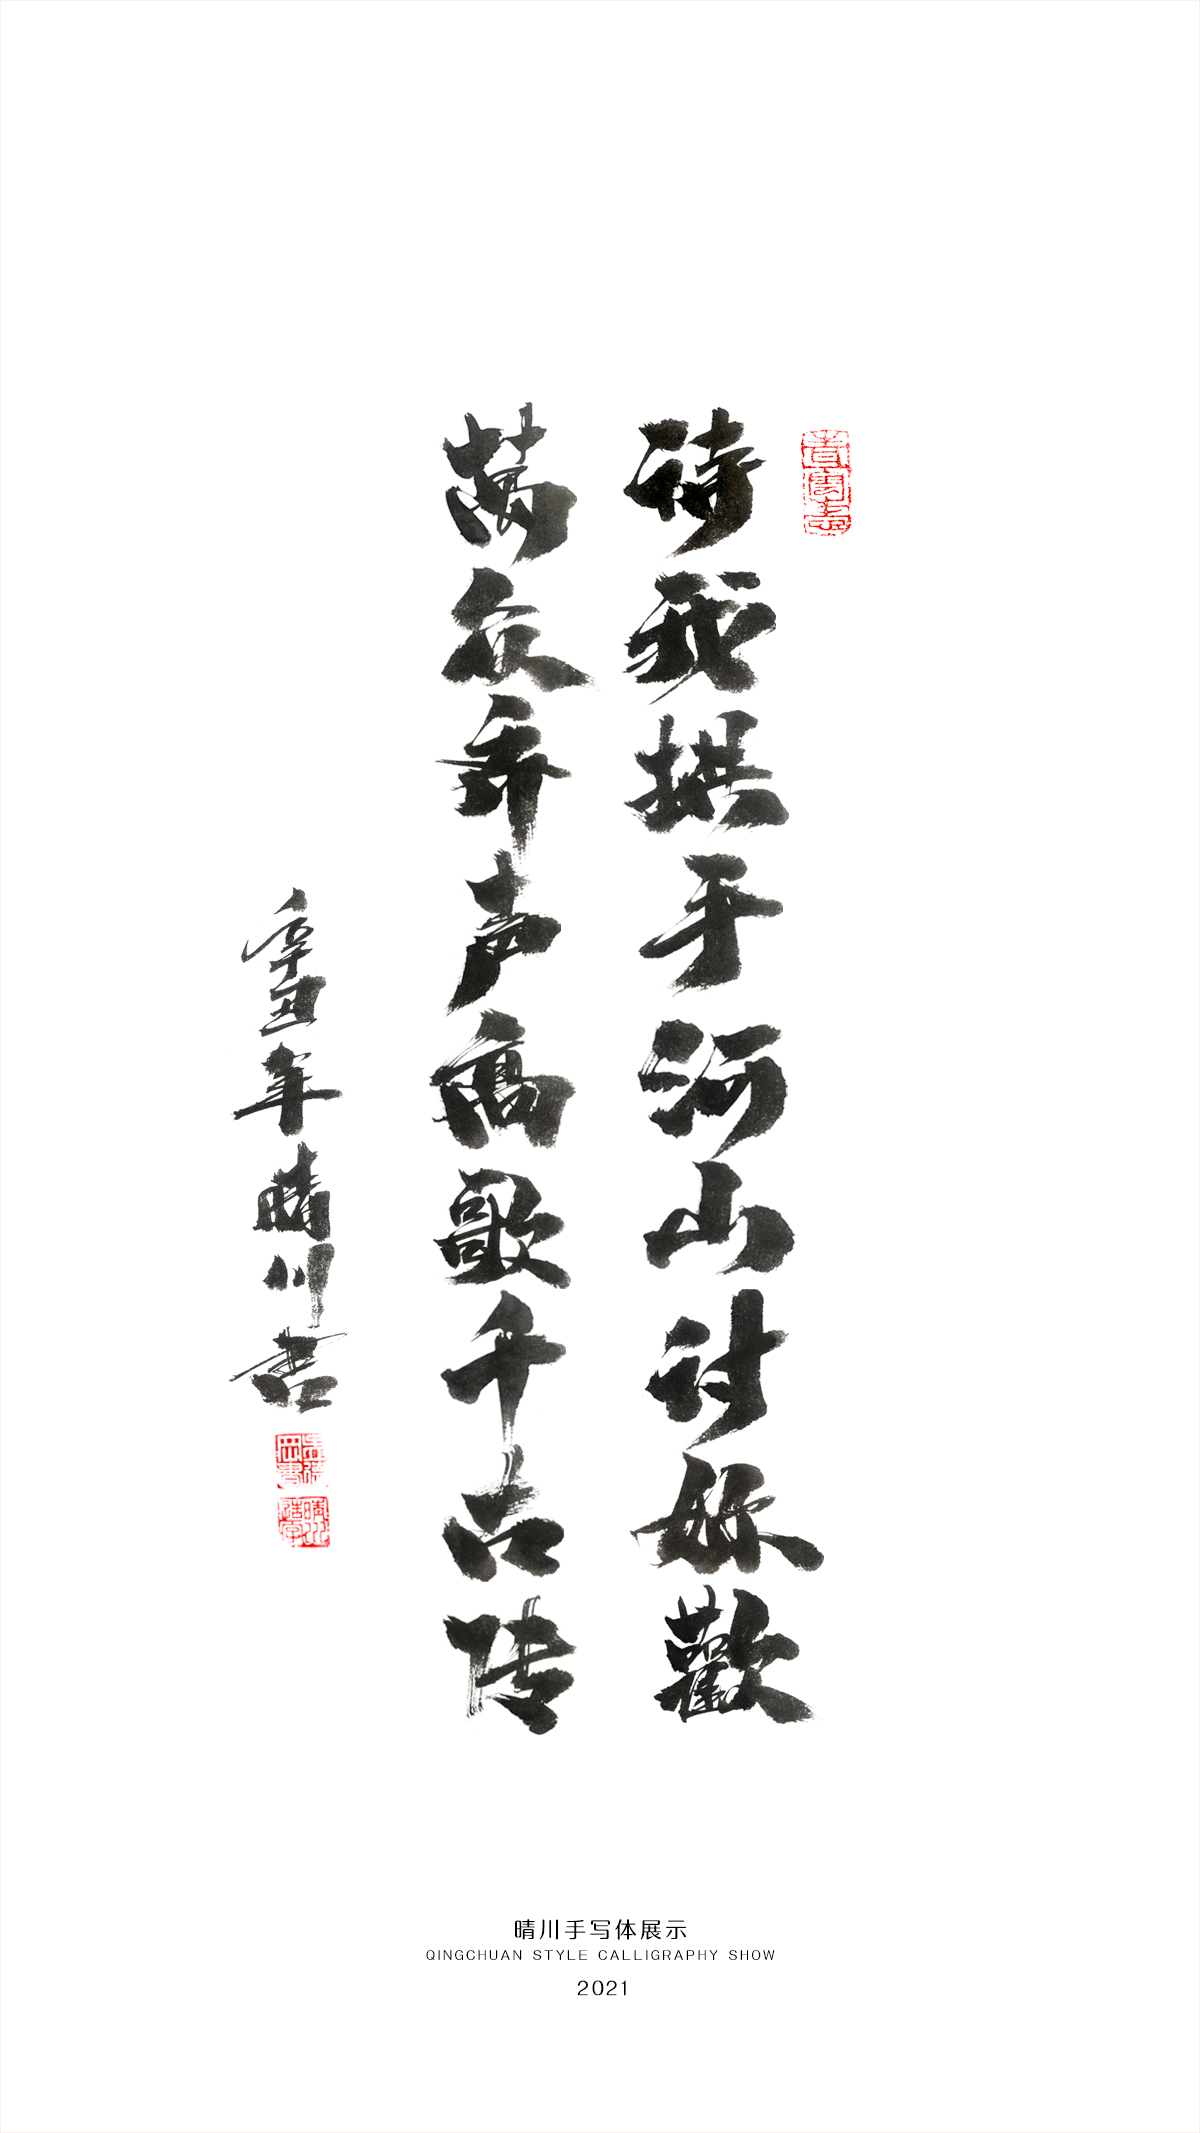 待我拱手河山讨你歡
萬众齐声高歌千古传
辛丑年晴川书
晴川手写体展示
QINGCHUAN STYLE CALLIGRAPHY SHOW
2021